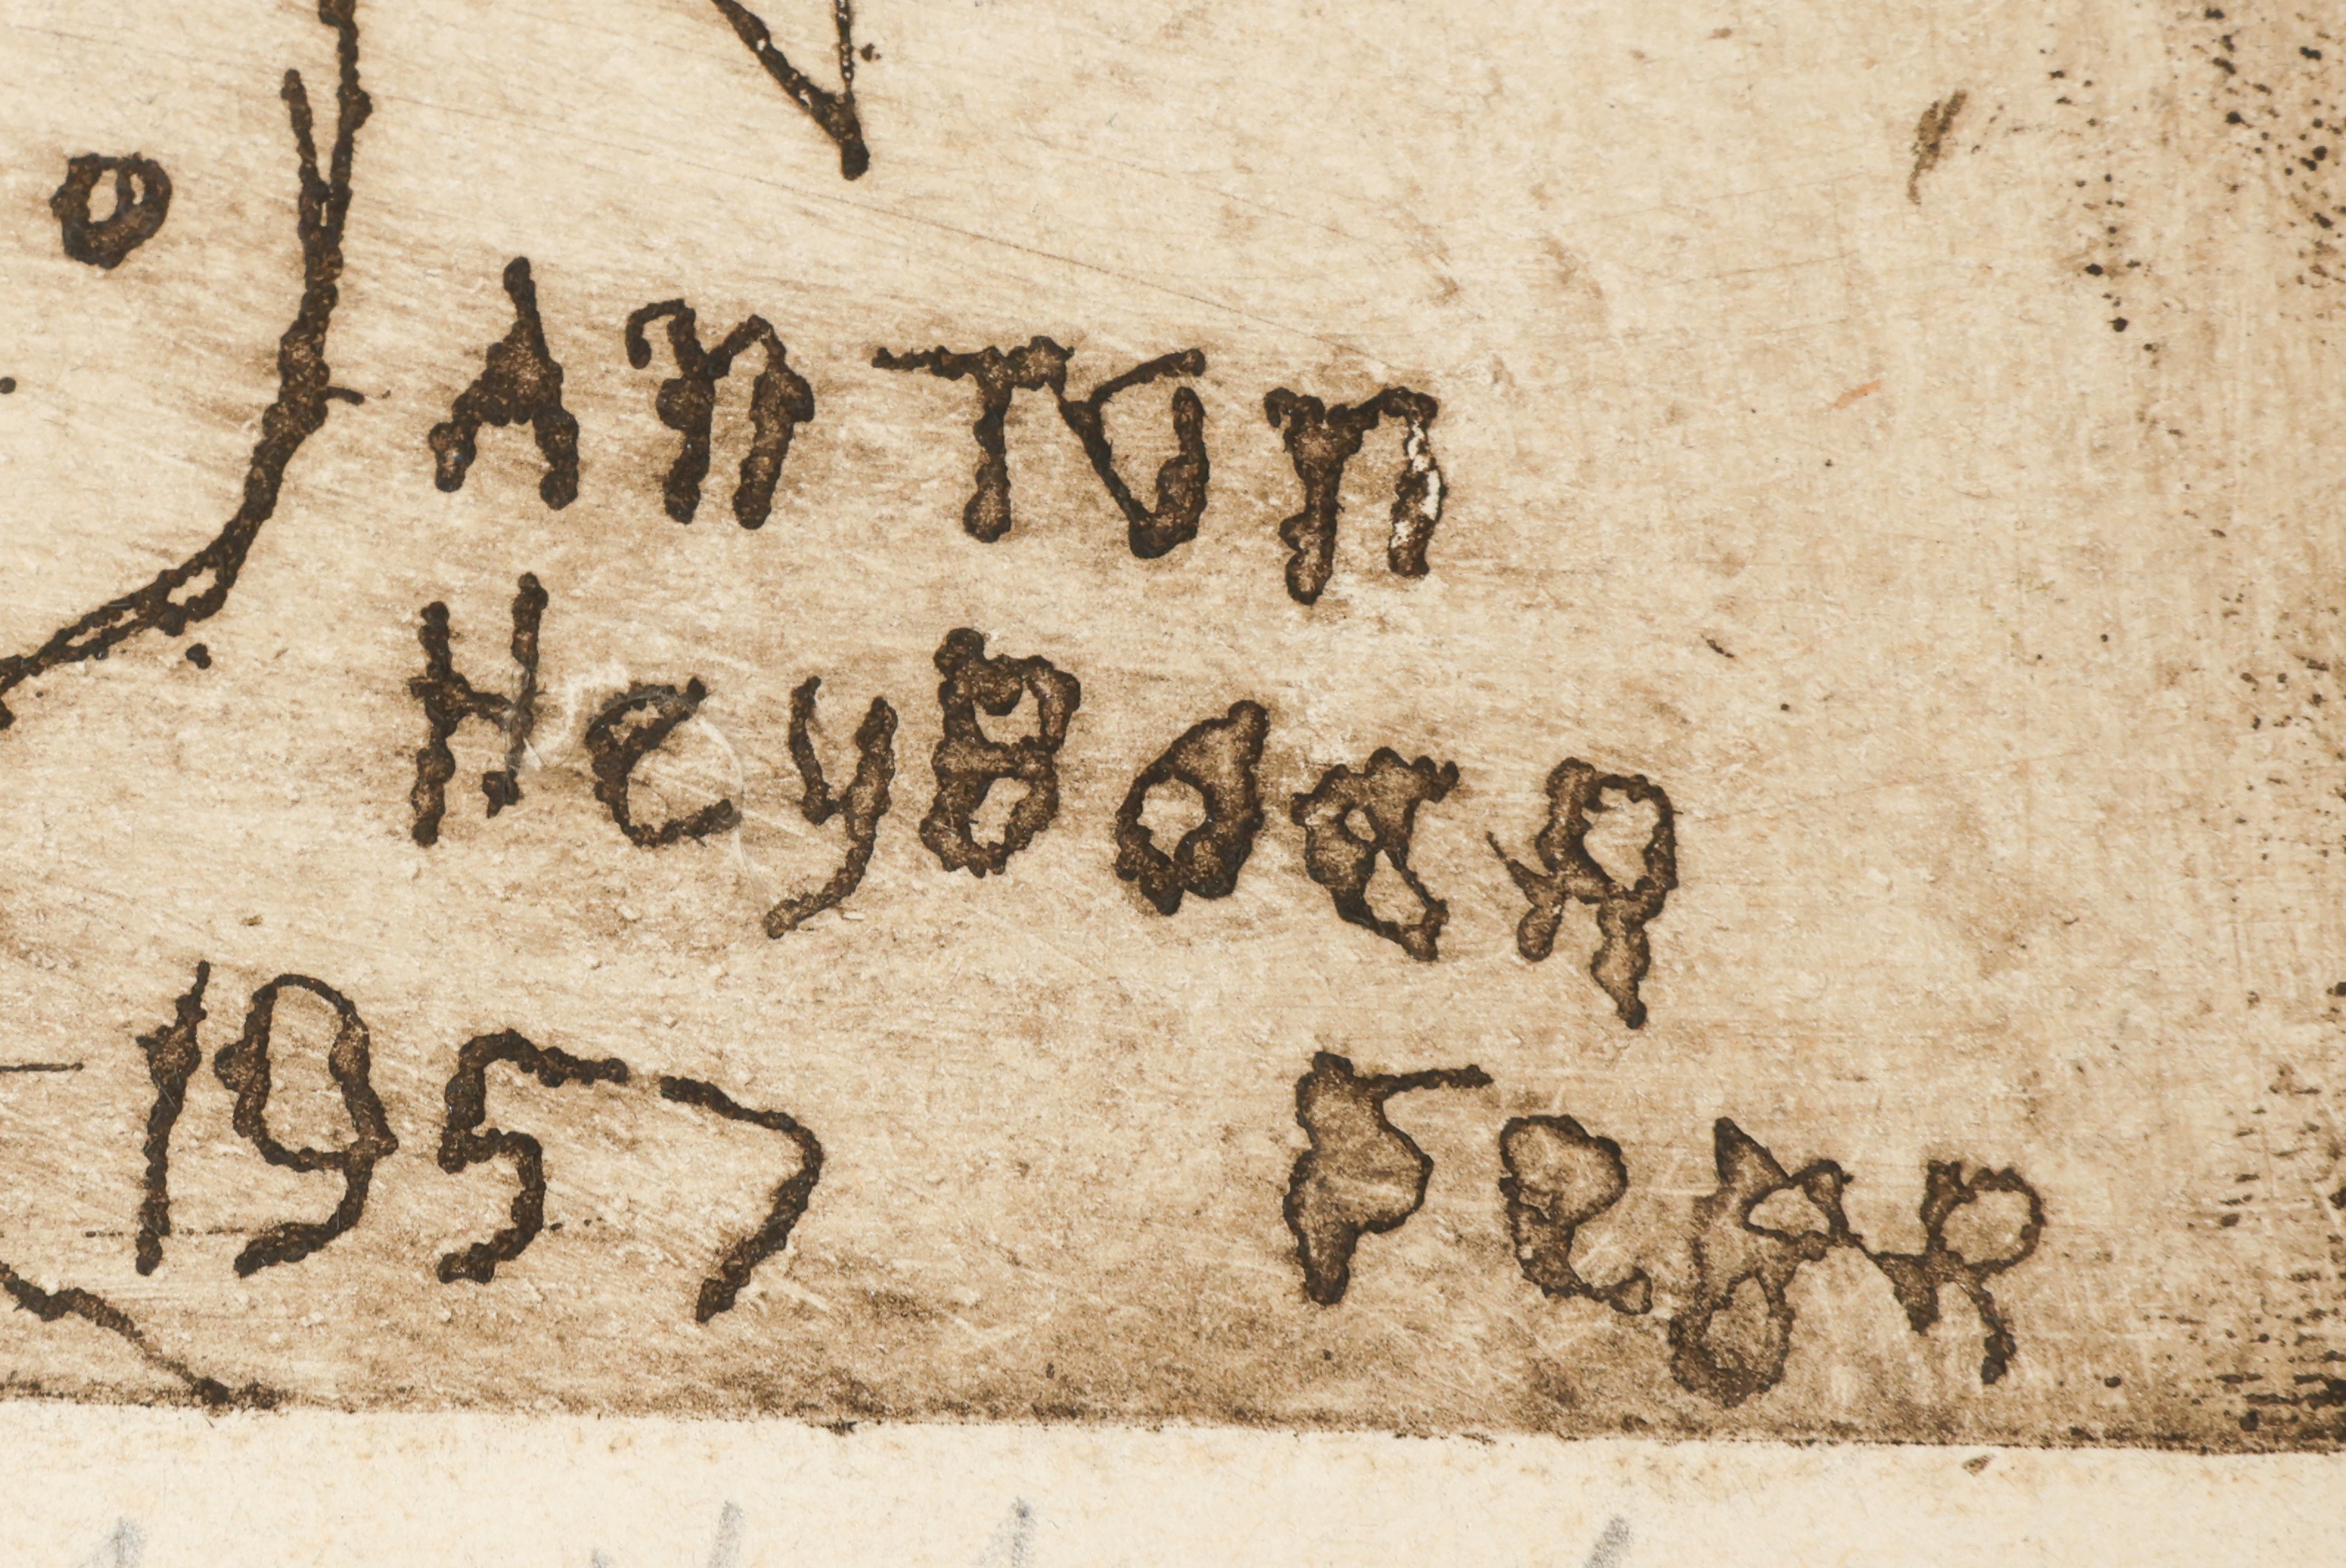 AnTon
HeyBoeR
1957 FebR